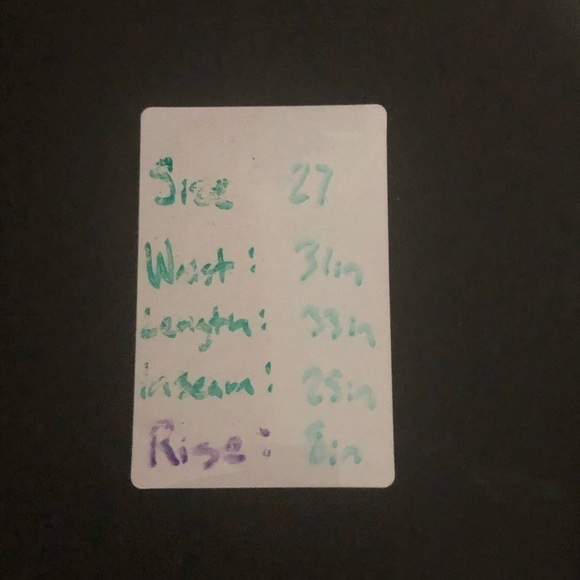 Size 27
Waist: 31in
Length: 33in
Inseam: 25in
Rise: 8in